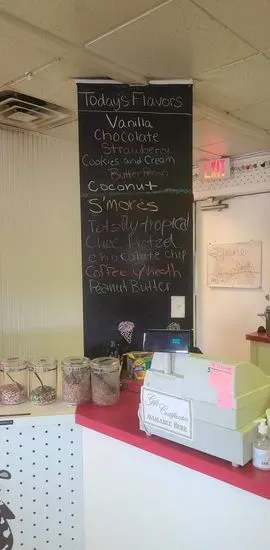 Today's Flavors
Vanilla
Chocolate
Strawberry
Cookies and Cream
Butter Pecan
Coconut
S'mores
Totally tropical
Choc Pretzel
chocolate chip
Coffee w/heath
Peanut Butter
EXIT
Gift Certificates
AVAILABLE HERE